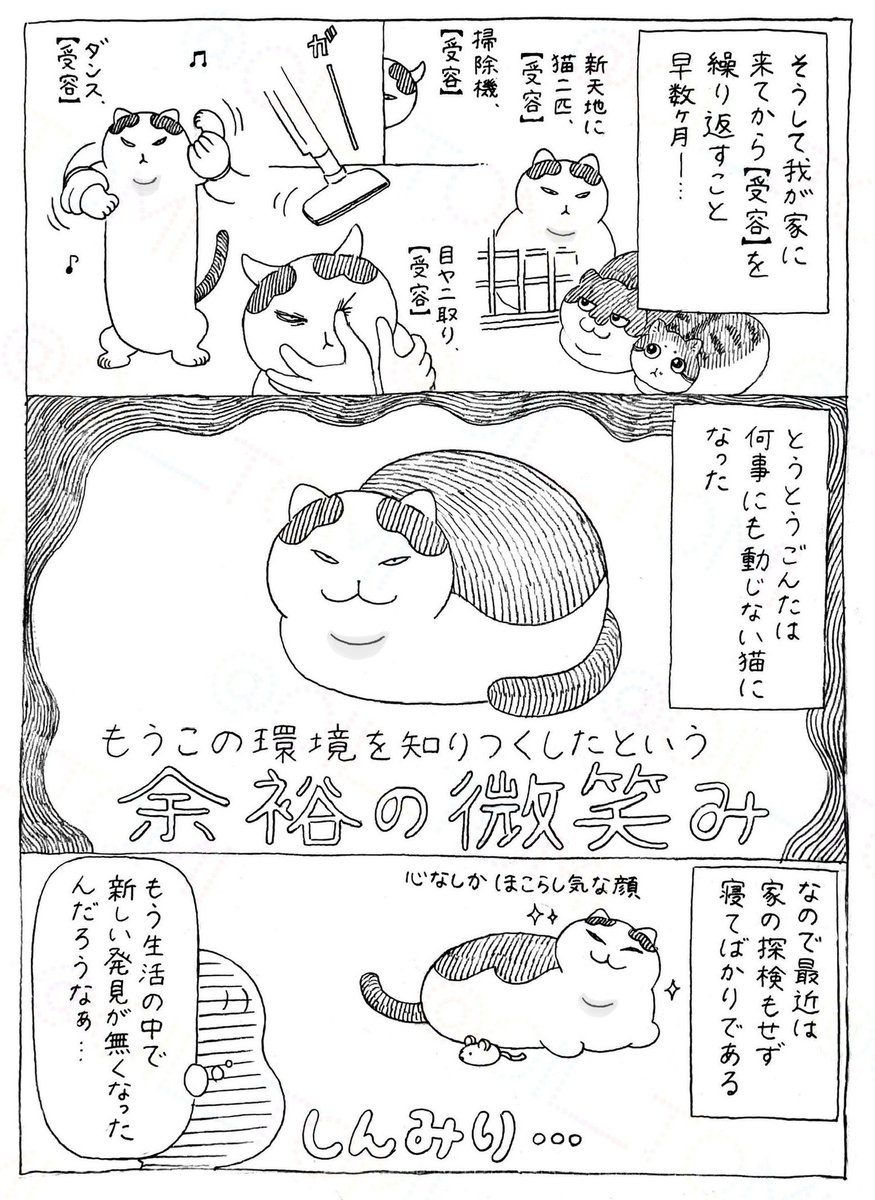 そうして我が家に
来てから【受容】を
繰り返すこと
早数ヶ月ー…
新天地に
猫二匹、
【受容】
掃除機、
【受容】
ガー
目ヤニ取り、
【受容】
ダンス、
【受容】
とうとうごんたは
何事にも動じない猫に
なった
もうこの環境を知りつくしたという
余裕の微笑み
なので最近は
家の探検もせず
寝てばかりである
心なしかほこらし気な顔
もう生活の中で
新しい発見が無くなった
んだろうなぁ…
しんみり…